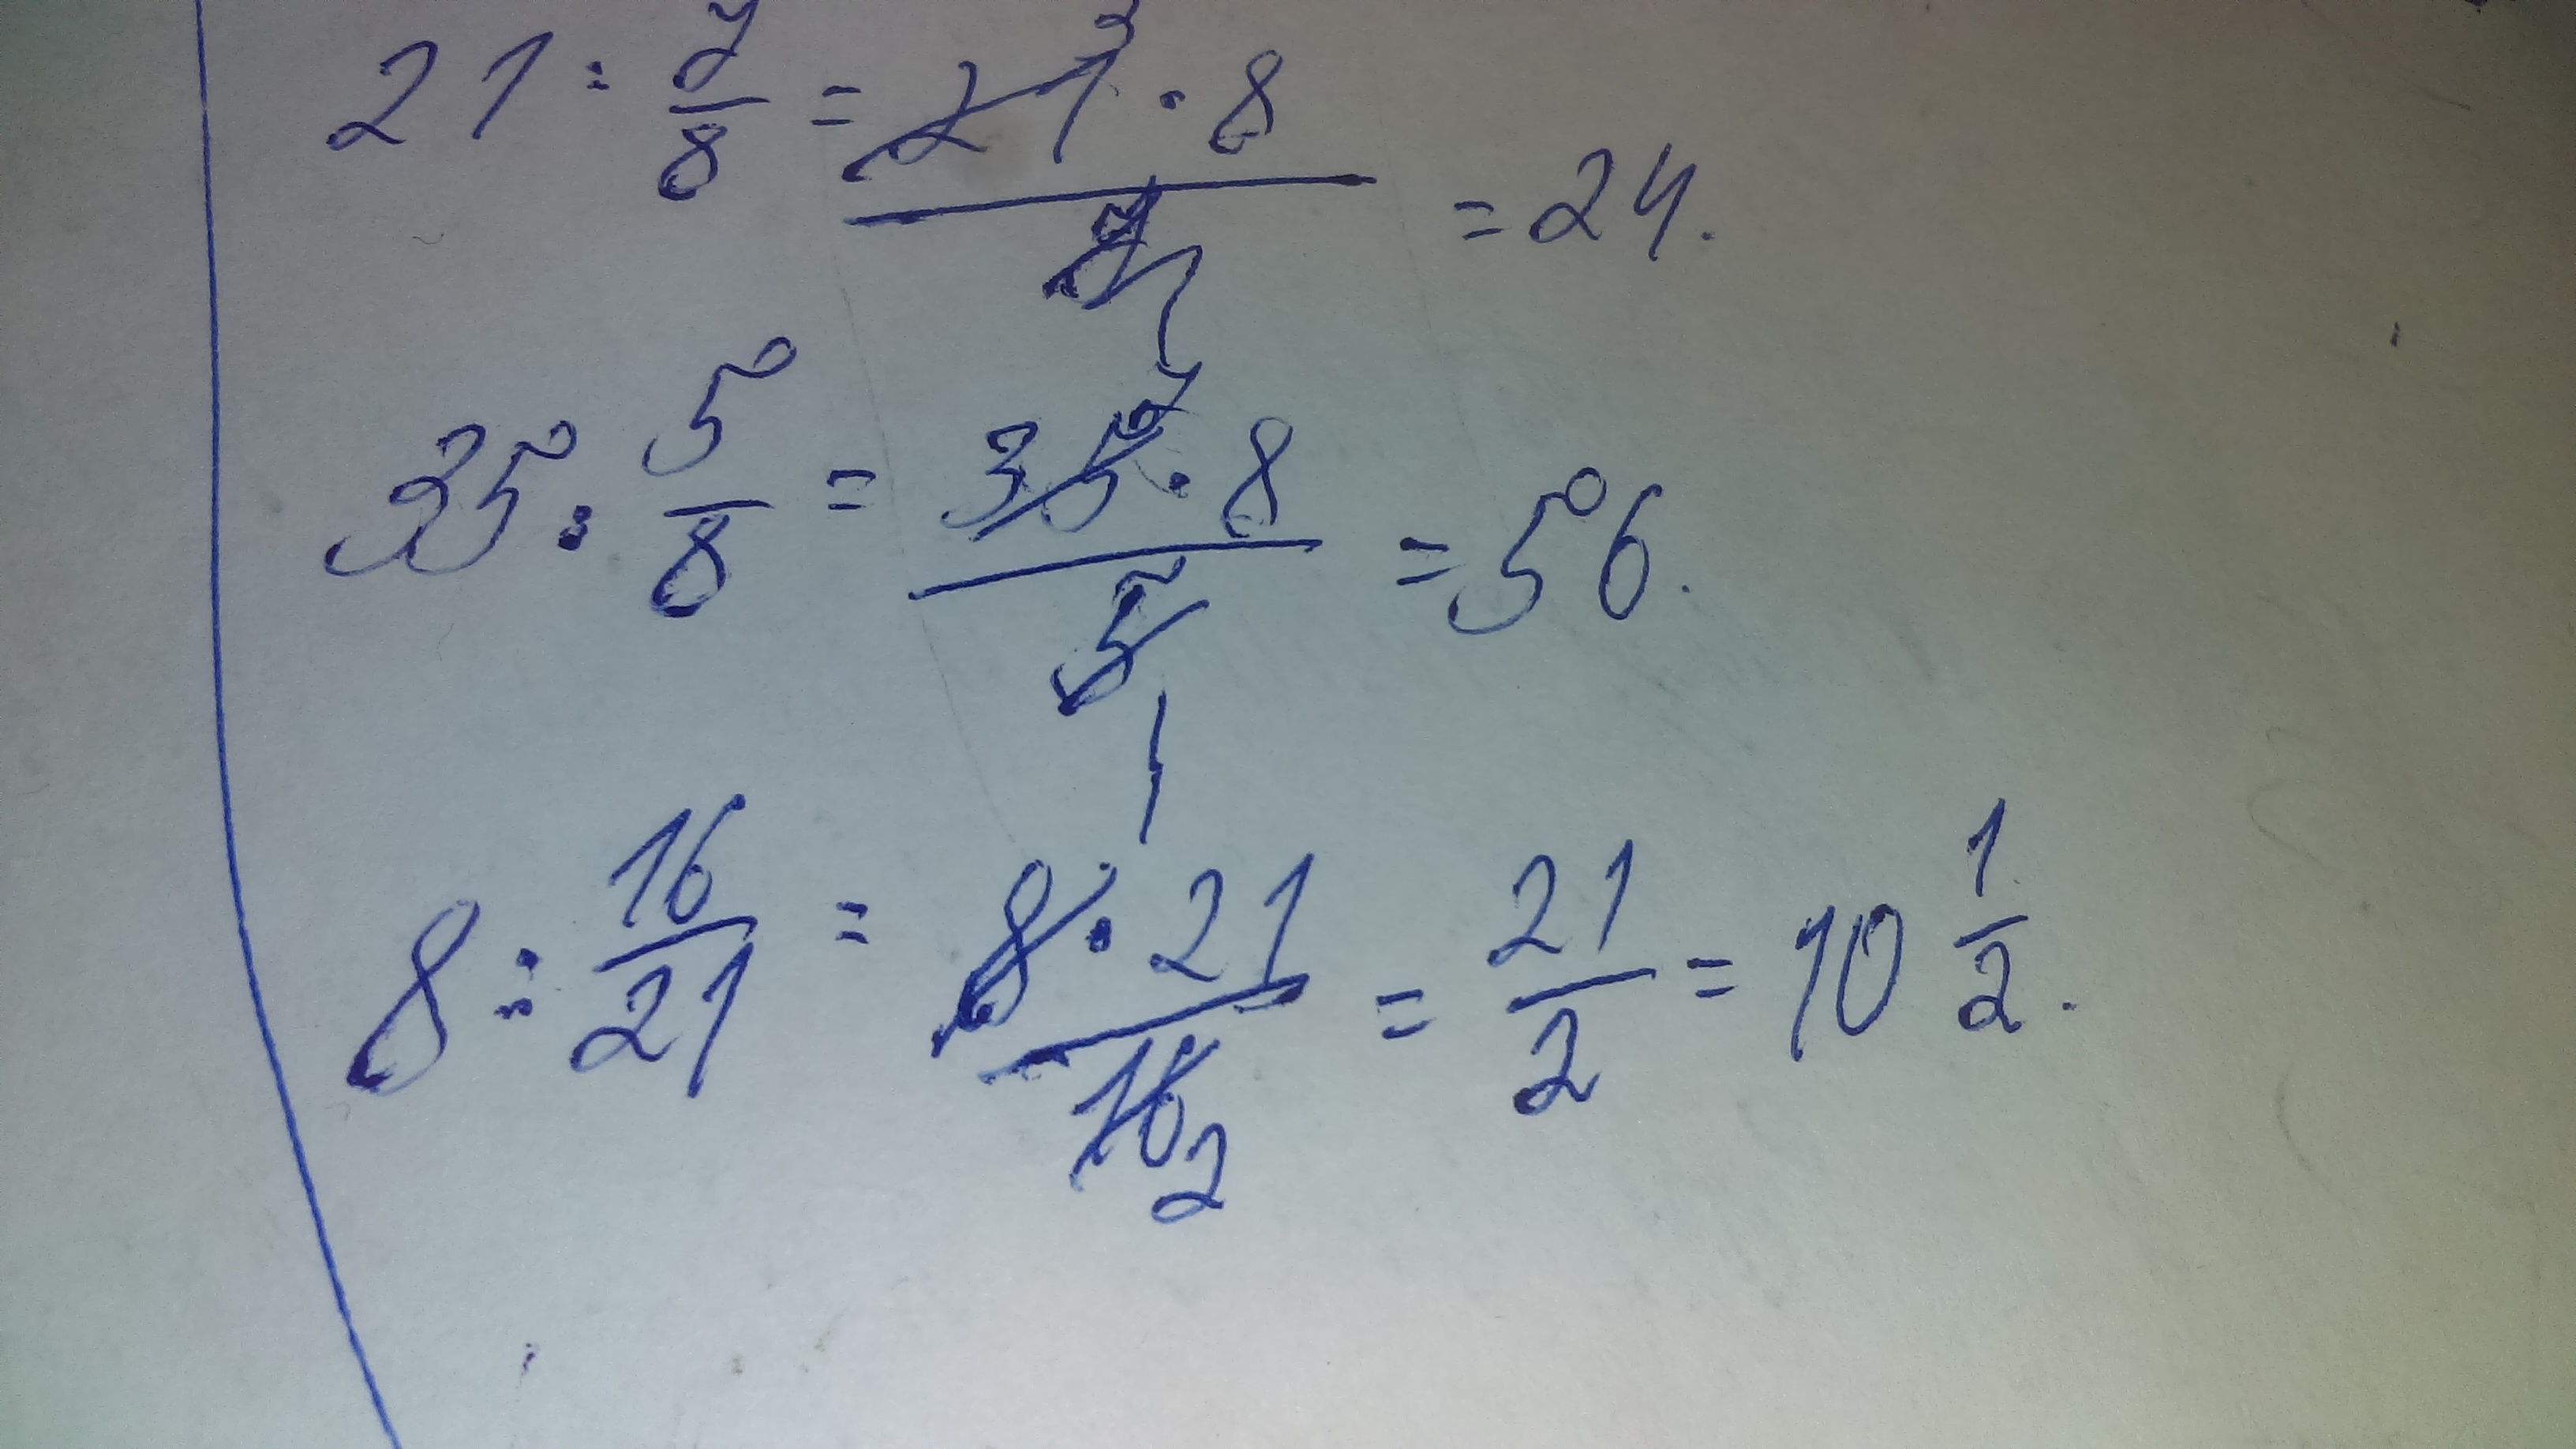 21 : 7/8 = 21³ · 8 / 7₁ = 24.
35 : 5/8 = 35⁷ · 8 / 5₁ = 56.
8 : 16/21 = 8¹ · 21 / 16₂ = 21/2 = 10 1/2.